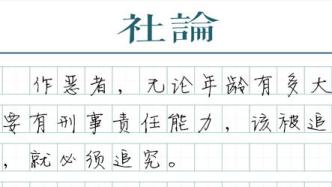 社論
作恶者，无论年龄有多大
要有刑事责任能力，该被追
，就必须追究。